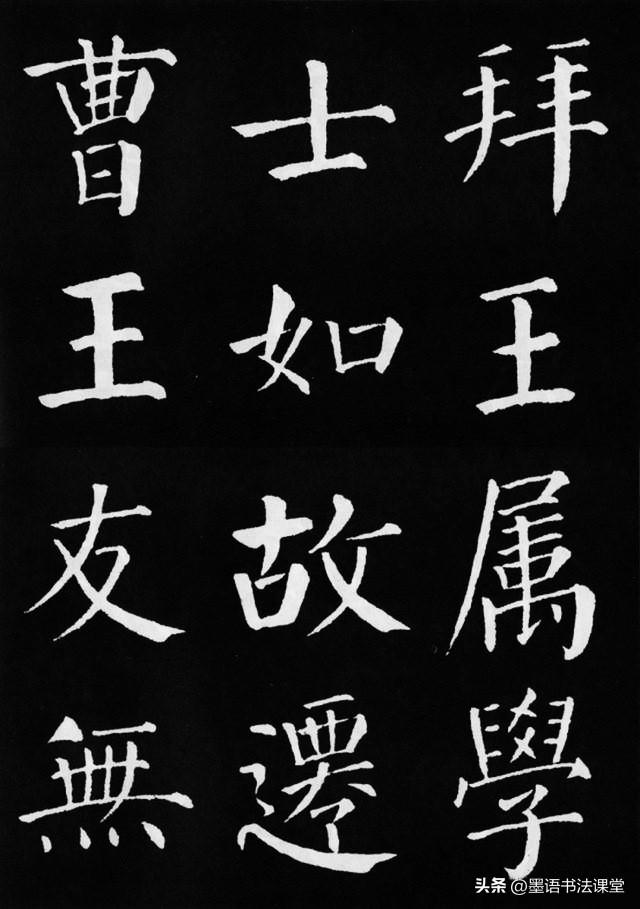 拜王属學
士如故遷
曹王友無
头条@墨语书法课堂